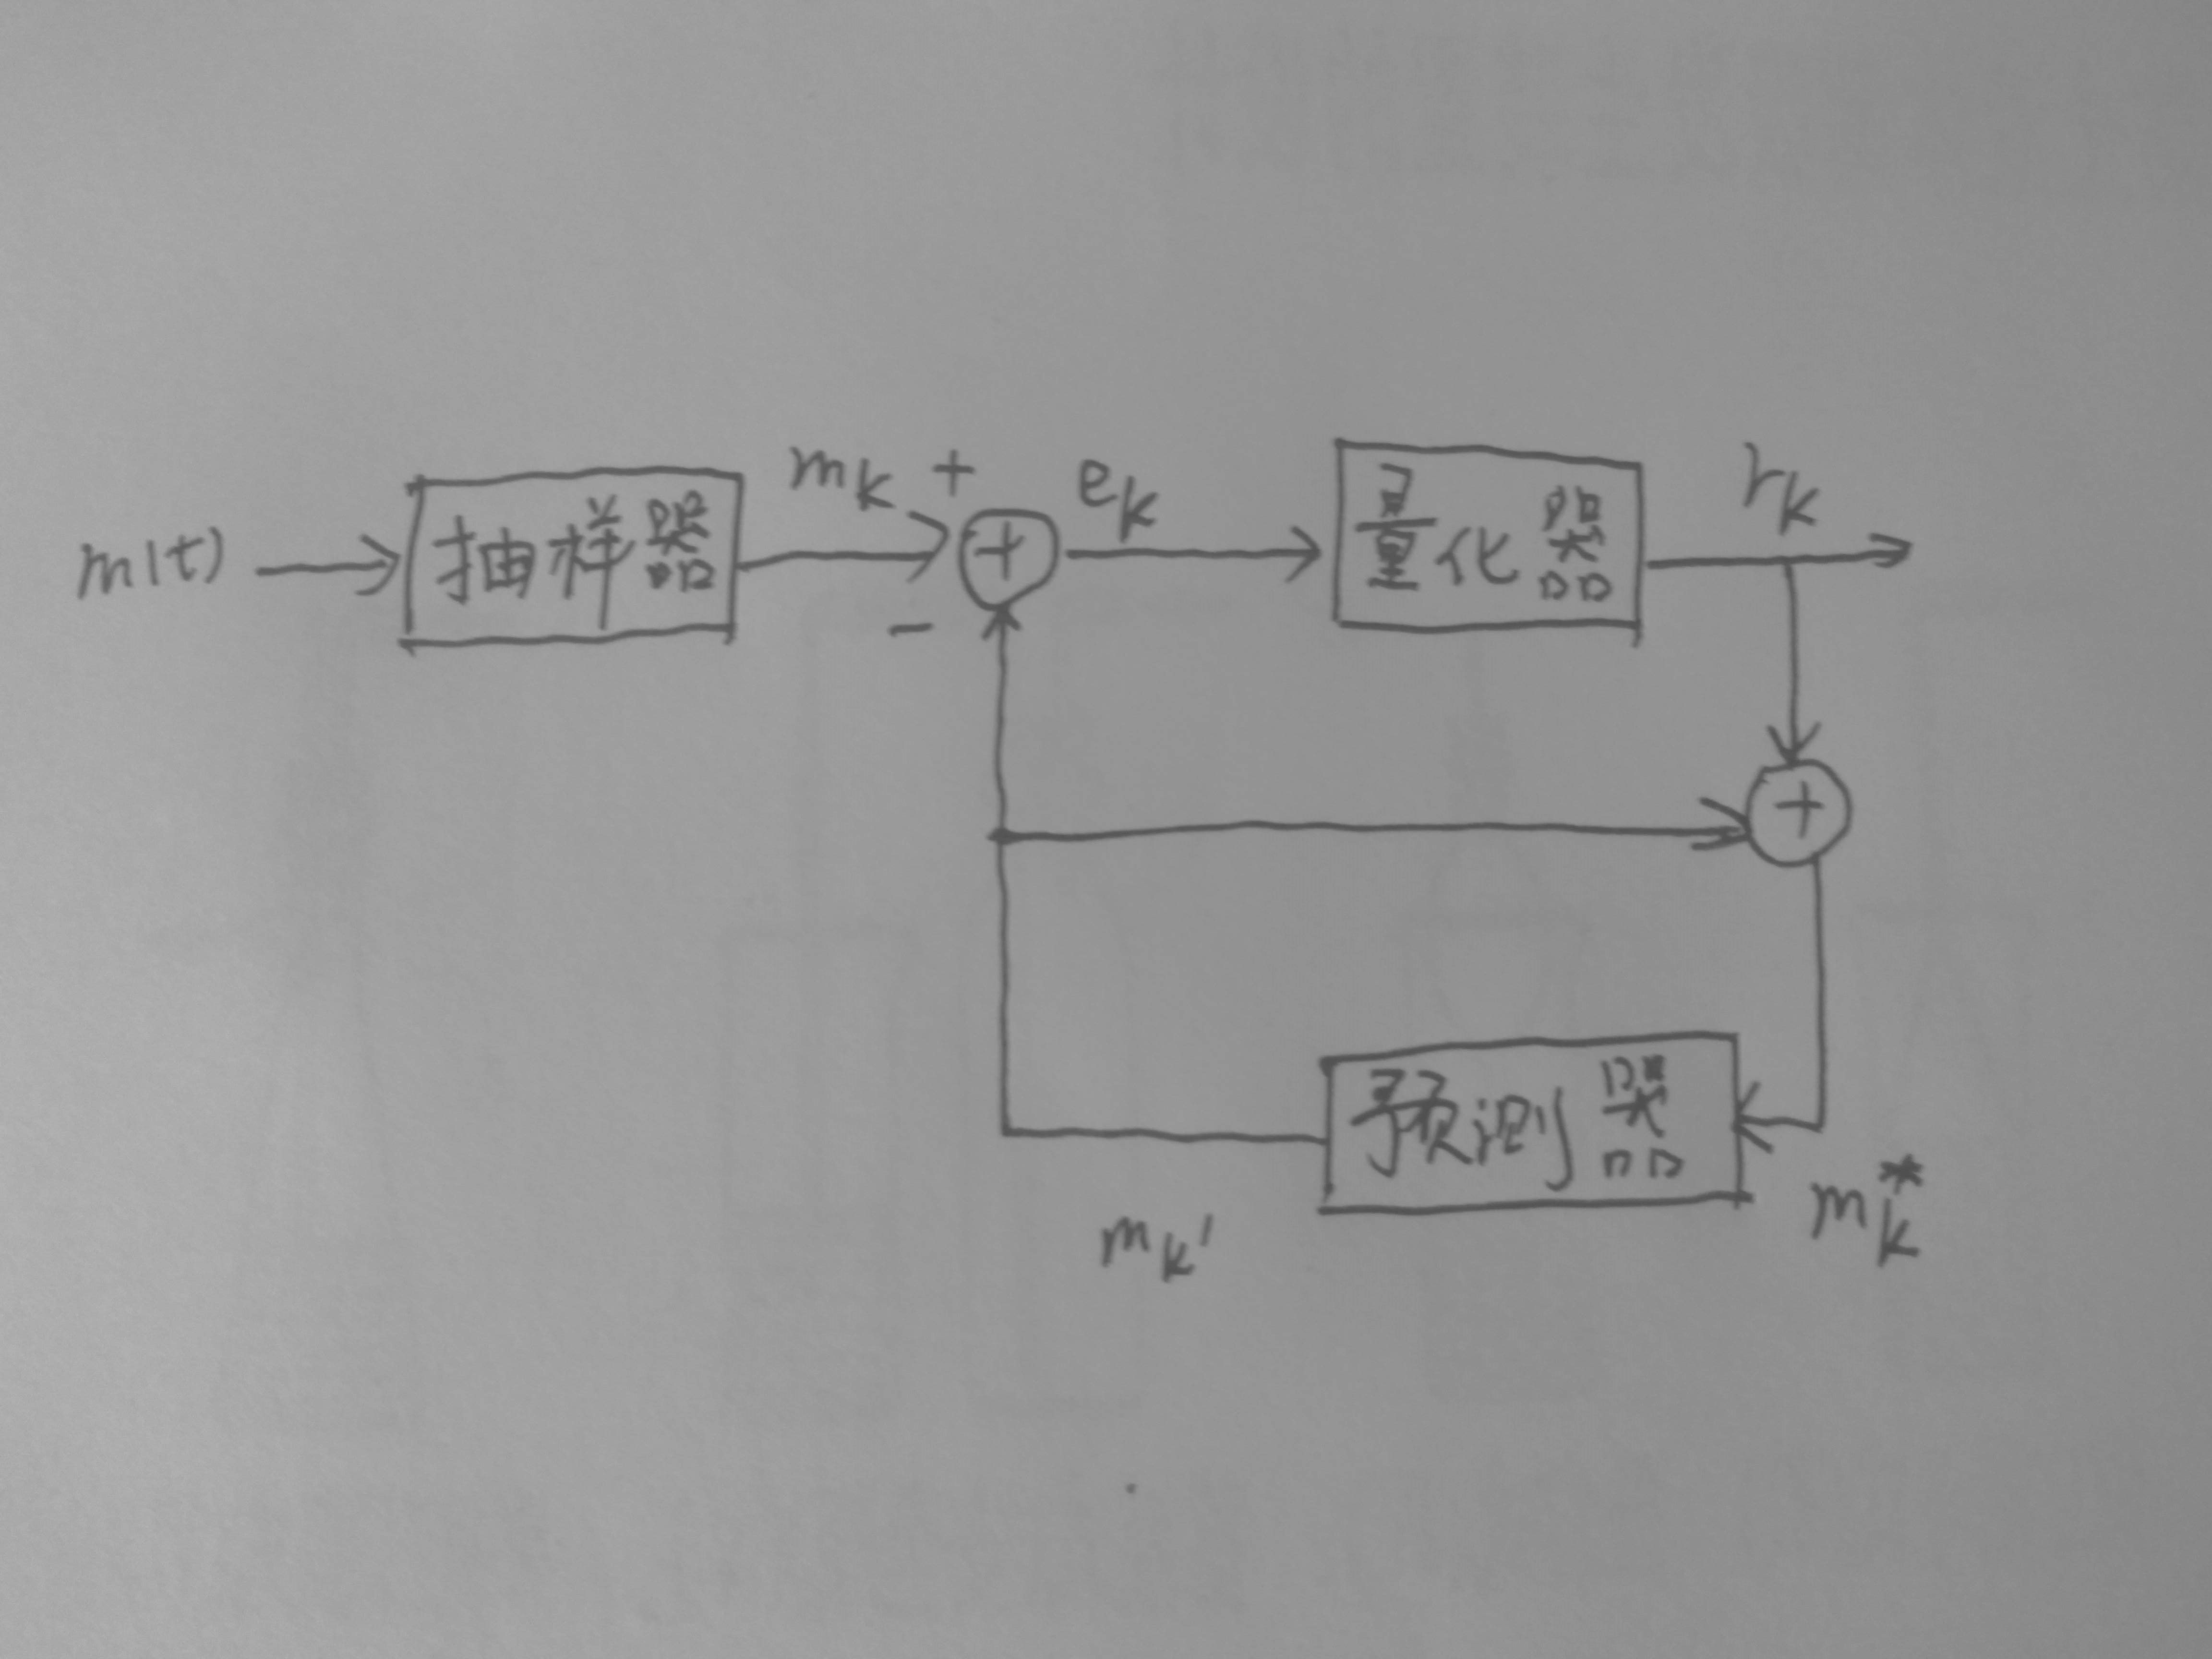 m(t) 抽样器 m_k + e_k 量化器 r_k
-
预测器
m_k' m_k^*